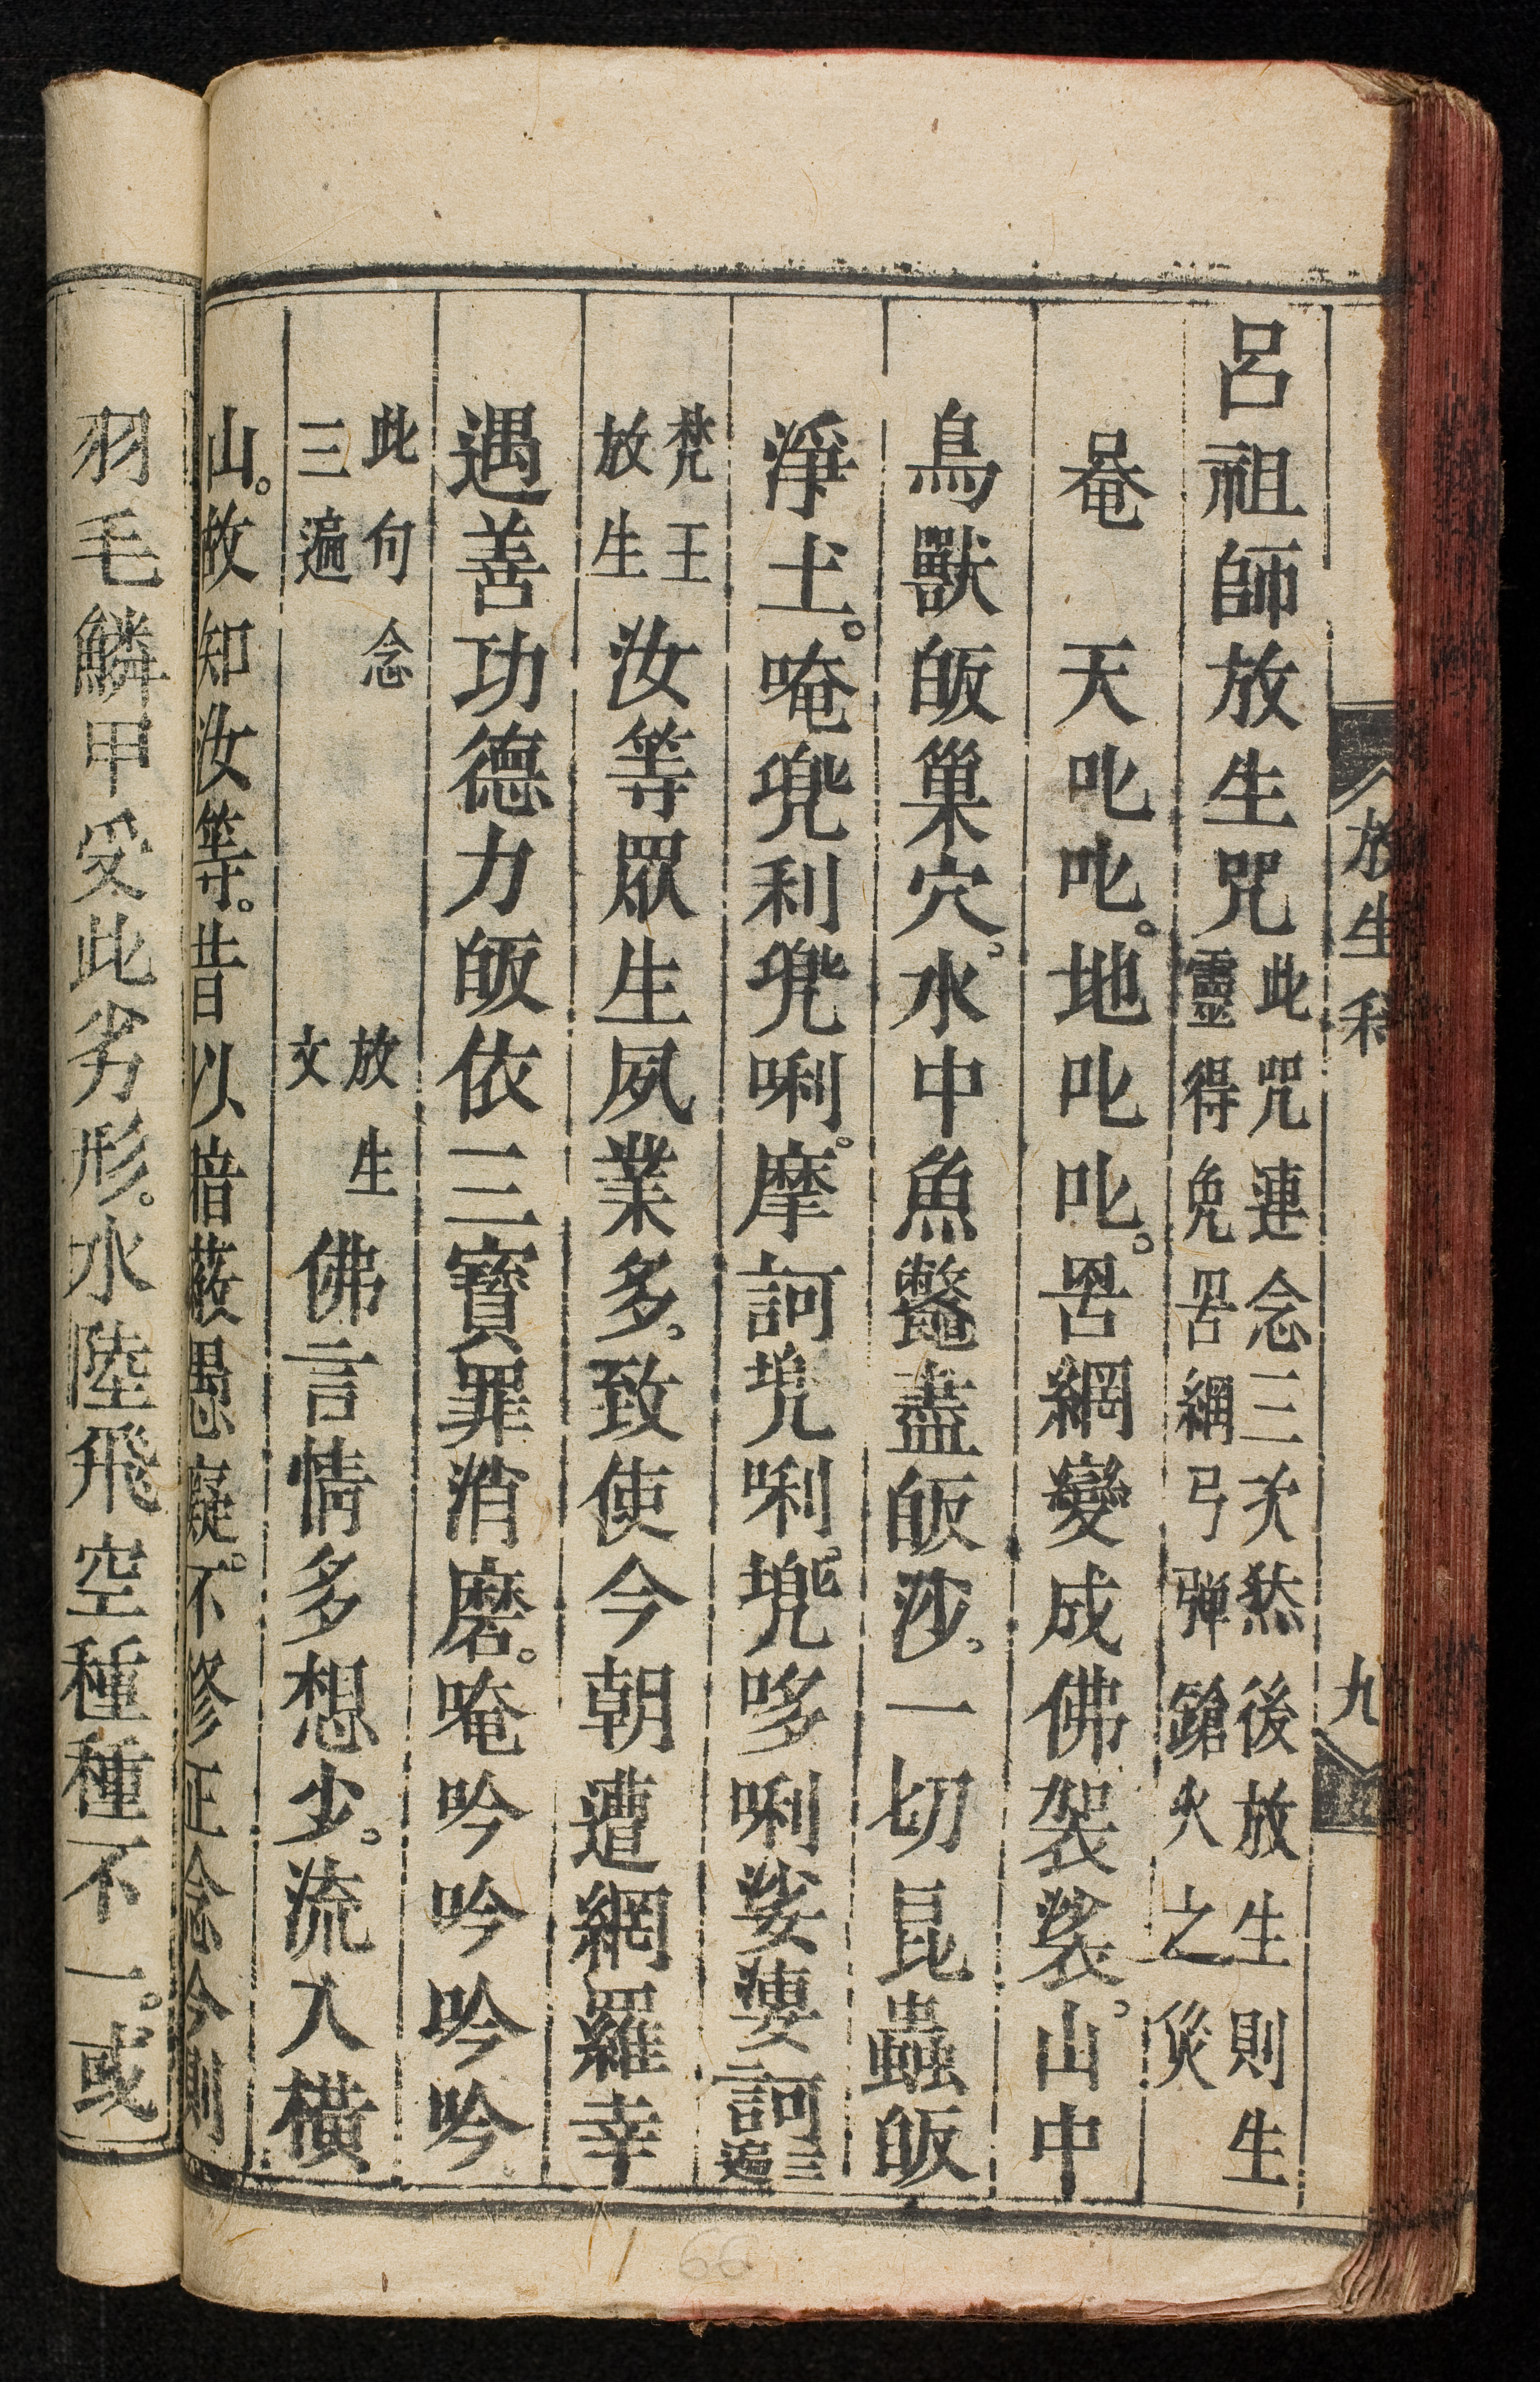 放生科
九
呂祖師放生咒此咒連念三次然後放生則生靈得免罟網弓彈鎗火之災
𠷇 天叱叱。地叱叱。罟網變成佛袈裟。山中
鳥獸皈巢穴。水中魚鼈盡皈沙。一切昆蟲皈
淨土。唵兠利兠唎。摩訶堍唎。唦唎娑婁訶三遍
梵王放生 汝等眾生夙業多。致使今朝遭網羅幸
遇善功德力皈依三寶罪消磨。唵吟吟吟吟
此句念三遍 放生文 佛言情多想少。流入橫
山。故知汝等。昔以揞蔽愚癡。不修正念今則
羽毛鱗甲受此劣形。水陸飛空種種不一。或
66